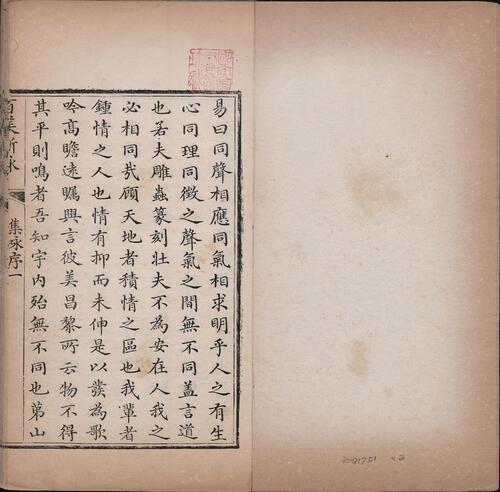 易曰同聲相應同氣相求明乎人之有生
心同理同徵之聲氣之間無不同蓋言道
也若夫雕蟲篆刻壯夫不為安在人我之
必相同㢤顧天地者積情之區也我輩者
鍾情之人也情有抑而未伸是以𤼵為歌
吟高瞻遠矚興言彼美昌黎所云物不得
其平則鳴者吾知宇內殆無不同也第山
百美新詠
集咏序一